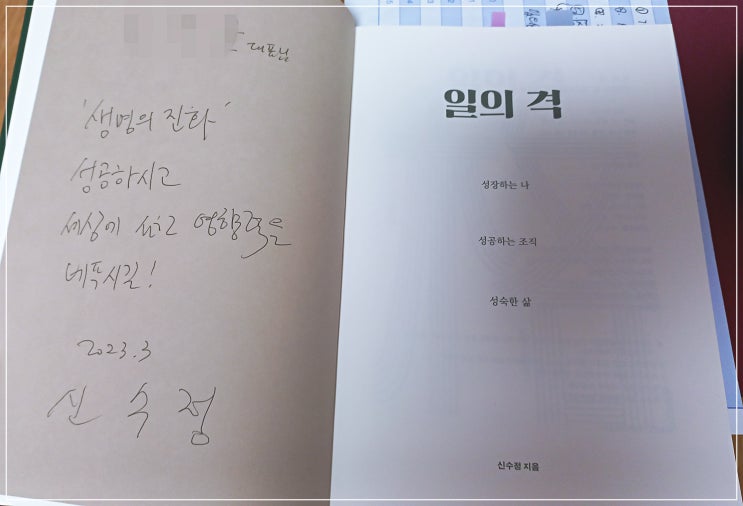 대표님
'생명의 진화'
성공하시고
세상에 선한 영향력을
베푸시길!
2023.3
신 수 정
일의 격
성장하는 나
성공하는 조직
성숙한 삶
신수정 지음